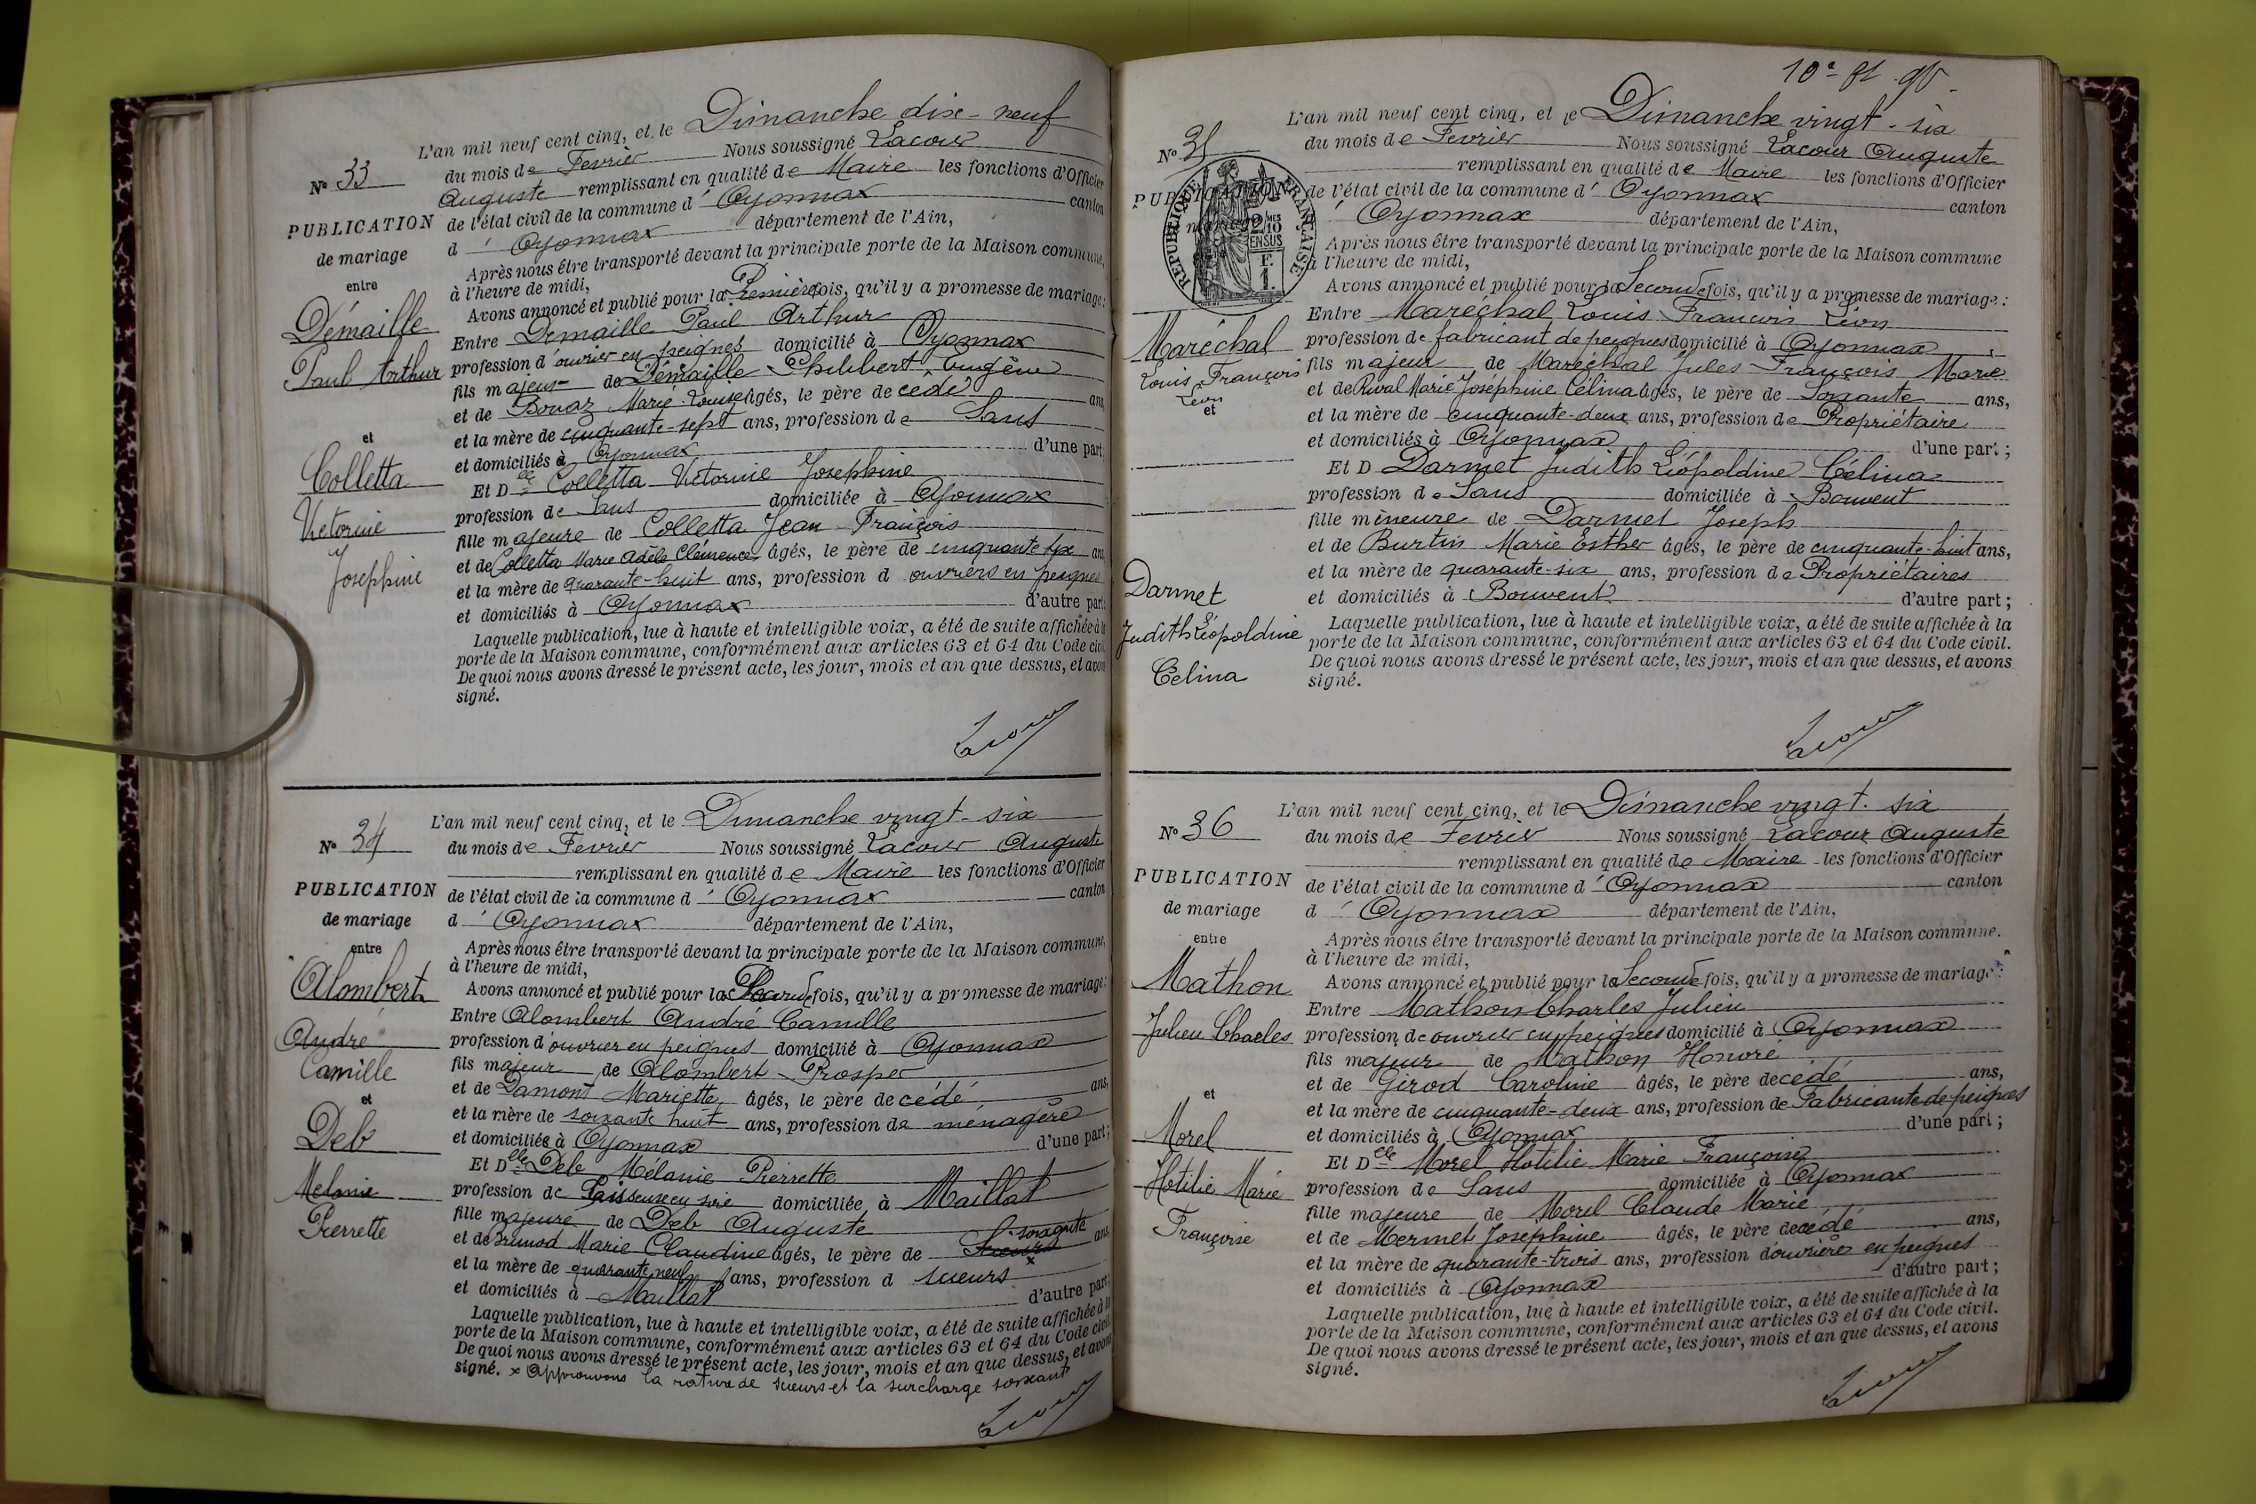 N° 33
PUBLICATION
de mariage
entre
Démaille
Paul Arthur
et
Colletta
Victorine
Josephine
L'an mil neuf cent cinq, et le Dimanche dix-neuf
du mois de Fevrier Nous soussigné Lacour
Auguste remplissant en qualité de Maire les fonctions d'Officier
de l'état civil de la commune d' Oyonnax canton
d' Oyonnax département de l'Ain,
Après nous être transporté devant la principale porte de la Maison commune,
à l'heure de midi,
Avons annoncé et publié pour la Première fois, qu'il y a promesse de mariage:
Entre Demaille Paul Arthur
profession d'ouvrier en peignes domicilié à Oyonnax
fils majeur de Démaille Philibert Eugène
et de Bonaz Marie Louise âgés, le père de cédé ans,
et la mère de cinquante-sept ans, profession de Sans
et domiciliés à Oyonnax d'une part;
Et Delle Colletta Victorine Josephine
profession de Sans domiciliée à Oyonnax
fille majeure de Colletta Jean François
et de Colletta Marie Adèle Clémence âgés, le père de cinquante six ans
et la mère de quarante-huit ans, profession d ouvriers en peignes
et domiciliés à Oyonnax d'autre part;
Laquelle publication, lue à haute et intelligible voix, a été de suite affichée à la
porte de la Maison commune, conformément aux articles 63 et 64 du Code civil.
De quoi nous avons dressé le présent acte, les jour, mois et an que dessus, et avons
signé.
Lacour
N° 34
PUBLICATION
de mariage
entre
Alombert
André
Camille
et
Deb
Melanie
Pierrette
L'an mil neuf cent cinq, et le Dimanche vingt-six
du mois de Fevrier Nous soussigné Lacour Auguste
remplissant en qualité de Maire les fonctions d'Officier
de l'état civil de la commune d' Oyonnax canton
d' Oyonnax département de l'Ain,
Après nous être transporté devant la principale porte de la Maison commune,
à l'heure de midi,
Avons annoncé et publié pour la Seconde fois, qu'il y a promesse de mariage:
Entre Alombert André Camille
profession d'ouvrier en peignes domicilié à Oyonnax
fils majeur de Alombert Prosper
et de Damont Mariette âgés, le père de cédé ans,
et la mère de soixante huit ans, profession de ménagère
et domiciliés à Oyonnax d'une part;
Et Delle Deb Mélanie Pierrette
profession de en soie domiciliée à Maillat
fille majeure de Deb Auguste
et de Brunod Marie Claudine âgés, le père de soixante ans
et la mère de quarante neuf ans, profession d sueurs
et domiciliés à Maillat d'autre part;
Laquelle publication, lue à haute et intelligible voix, a été de suite affichée à la
porte de la Maison commune, conformément aux articles 63 et 64 du Code civil.
De quoi nous avons dressé le présent acte, les jour, mois et an que dessus, et avons
signé. x Approuvons la rature de sueurs et la surcharge soixant
Lacour
10e ft
N° 35
PUBLICATION
de mariage
REPUBLIQUE FRANÇAISE
2/10 EN SUS
Maréchal
Louis François
Léon
et
Darmet
Judith Léopoldine
Célina
L'an mil neuf cent cinq, et le Dimanche vingt-six
du mois de Fevrier Nous soussigné Lacour Auguste
remplissant en qualité de Maire les fonctions d'Officier
de l'état civil de la commune d' Oyonnax canton
' Oyonnax département de l'Ain,
Après nous être transporté devant la principale porte de la Maison commune
à l'heure de midi,
Avons annoncé et publié pour la Seconde fois, qu'il y a promesse de mariage:
Entre Maréchal Louis François Léon
profession de fabricant de peignes domicilié à Oyonnax
fils majeur de Maréchal Jules François Marie
et de Rival Marie Joséphine Célina âgés, le père de Soixante ans,
et la mère de cinquante-deux ans, profession de Propriétaire
et domiciliés à Oyonnax d'une part;
Et D Darmet Judith Léopoldine Célina
profession de Sans domiciliée à Bouvent
fille mineure de Darmet Joseph
et de Burtin Marie Esther âgés, le père de cinquante-huit ans,
et la mère de quarante-six ans, profession de Propriétaires
et domiciliés à Bouvent d'autre part;
Laquelle publication, lue à haute et intelligible voix, a été de suite affichée à la
porte de la Maison commune, conformément aux articles 63 et 64 du Code civil.
De quoi nous avons dressé le présent acte, les jour, mois et an que dessus, et avons
signé.
Lacour
N° 36
PUBLICATION
de mariage
entre
Mathon
Julien Charles
et
Morel
Hotilie Marie
Françoise
L'an mil neuf cent cinq, et le Dimanche vingt-six
du mois de Fevrier Nous soussigné Lacour Auguste
remplissant en qualité de Maire les fonctions d'Officier
de l'état civil de la commune d' Oyonnax canton
d' Oyonnax département de l'Ain,
Après nous être transporté devant la principale porte de la Maison commune.
à l'heure de midi,
Avons annoncé et publié pour la Seconde fois, qu'il y a promesse de mariage:
Entre Mathon Charles Julien
profession de ouvrier en peignes domicilié à Oyonnax
fils majeur de Mathon Honoré
et de Girod Caroline âgés, le père decédé ans,
et la mère de cinquante-deux ans, profession de Fabricante de peignes
et domiciliés à Oyonnax d'une part;
Et Delle Morel Hotilie Marie Françoise
profession de Sans domiciliée à Oyonnax
fille majeure de Morel Claude Marie
et de Mermet Josephine âgés, le père decédé ans,
et la mère de quarante-trois ans, profession d'ouvrière en peignes
et domiciliés à Oyonnax d'autre part;
Laquelle publication, lue à haute et intelligible voix, a été de suite affichée à la
porte de la Maison commune, conformément aux articles 63 et 64 du Code civil.
De quoi nous avons dressé le présent acte, les jour, mois et an que dessus, et avons
signé.
Lacour